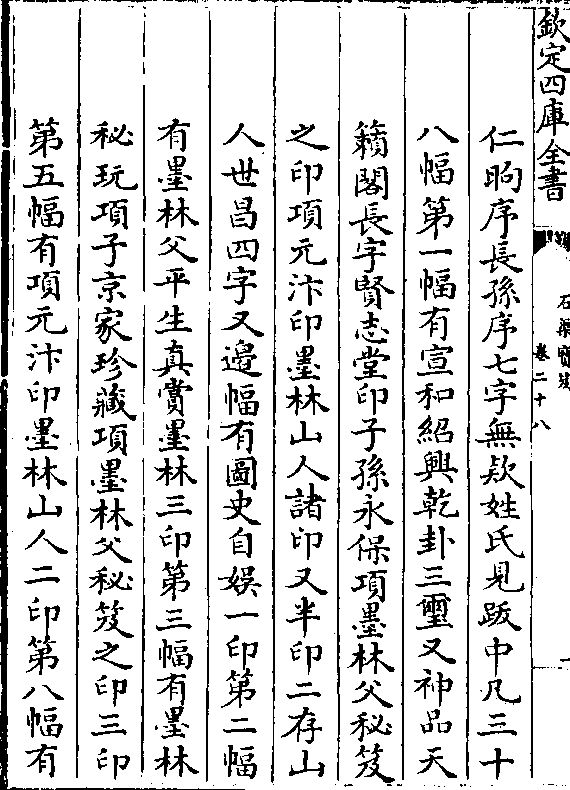 欽定四庫全書
石渠寶笈
卷二十八
仁昫序長孫序七字無欵姓氏見跋中凡三十
八幅第一幅有宣和紹興乾卦三璽又神品天
籟閣長字賢志堂印子孫永保項墨林父秘笈
之印項元汴印墨林山人諸印又半印二存山
人世昌四字又邉幅有圖史自娯一印第二幅
有墨林父平生真賞墨林三印第三幅有墨林
秘玩項子京家珍藏項墨林父秘笈之印三印
第五幅有項元汴印墨林山人二印第八幅有